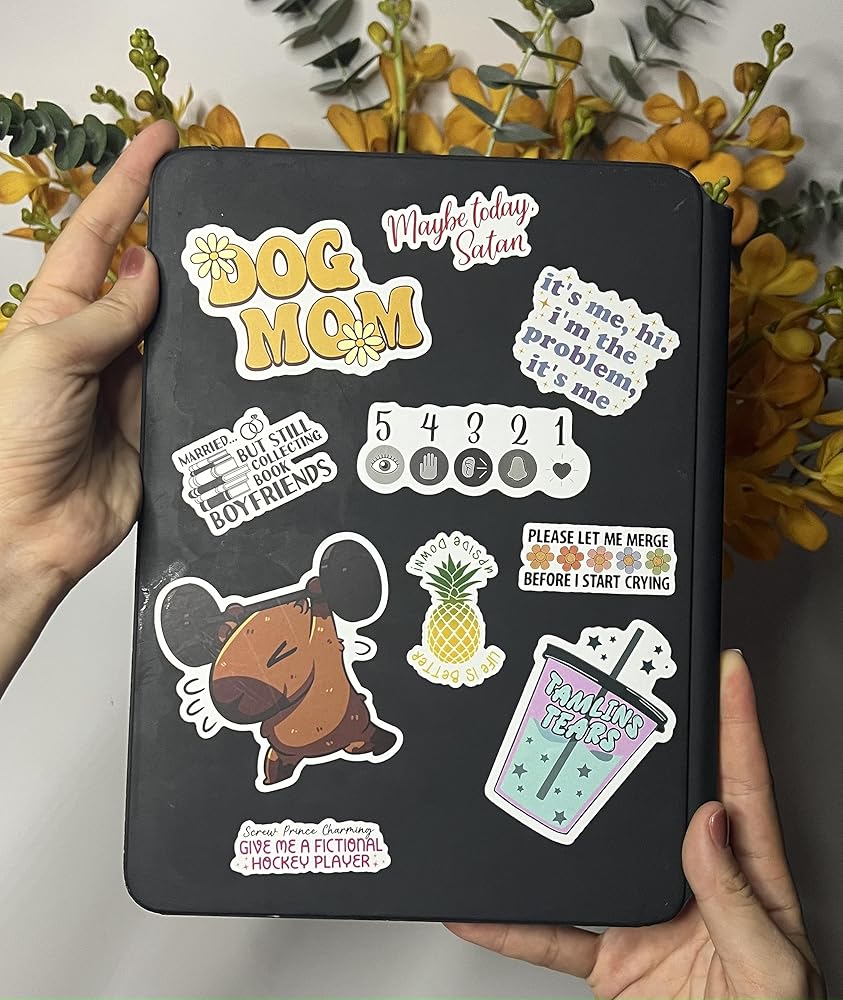 Maybe today,
Satan
DOG
MOM
it's me, hi.
i'm the
problem,
it's me
MARRIED...
BUT STILL
COLLECTING
BOOK
BOYFRIENDS
5 4 3 2 1
PLEASE LET ME MERGE
BEFORE I START CRYING
LIFE IS BETTER
UPSIDE DOWN!
TAMLINS
TEARS
Screw Prince Charming
GIVE ME A FICTIONAL
HOCKEY PLAYER